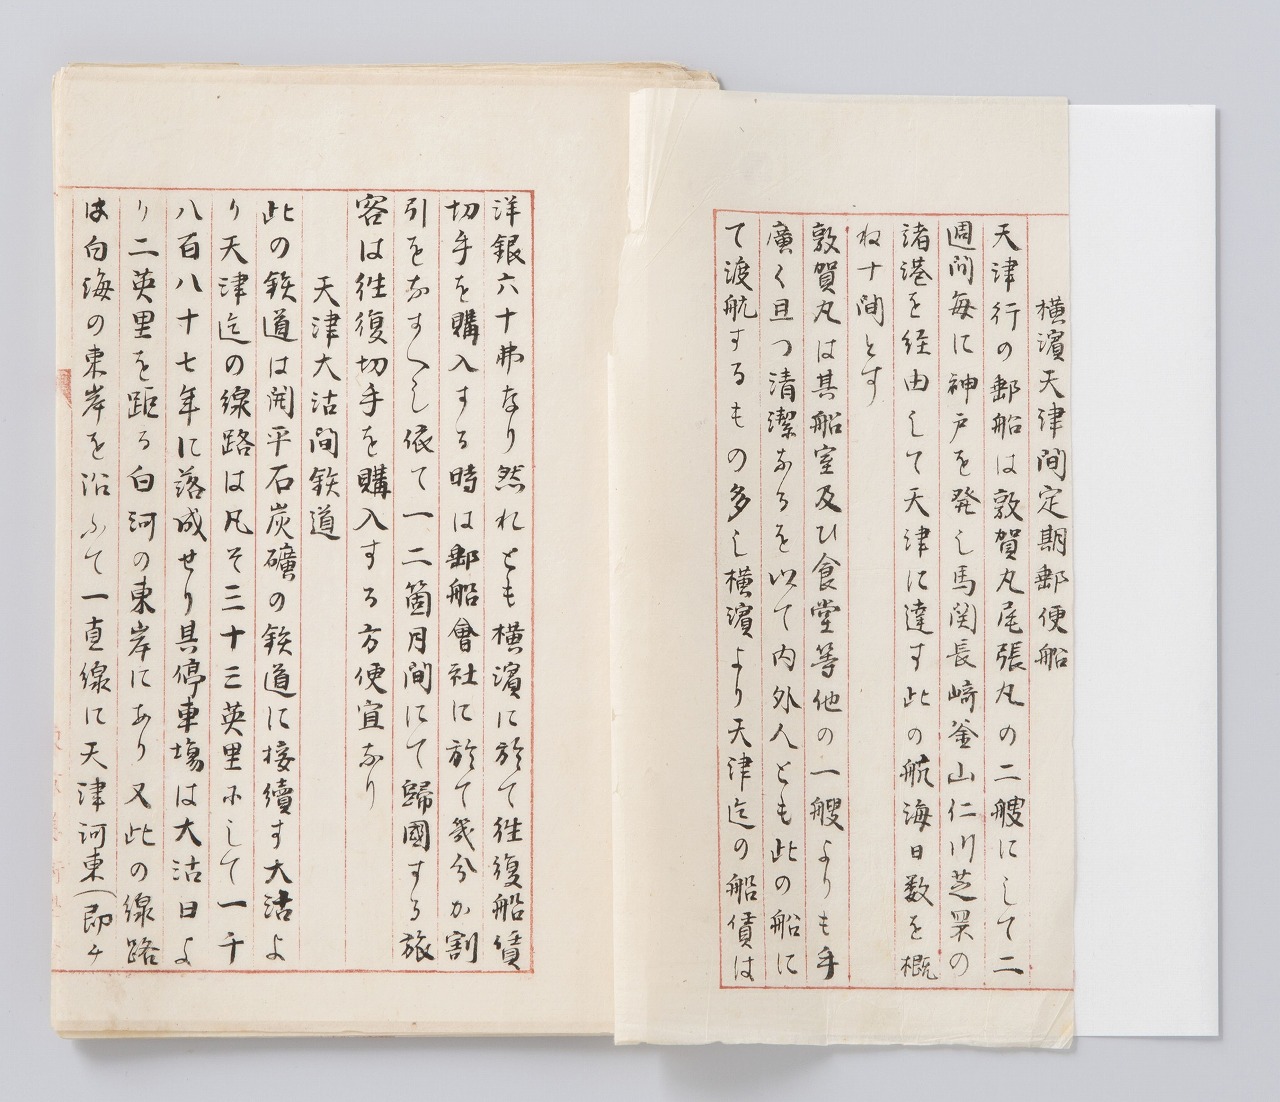 横濱天津間定期郵便船
天津行の郵船は敦賀丸尾張丸の二艘にして二
週間毎に神戸を発し馬関長崎釜山仁川芝罘の
諸港を経由して天津に達す此の航海日数を概
ね十間とす
敦賀丸は其船室及ひ食堂等他の一艘よりも手
廣く且つ清潔なるを以て内外人とも此の船に
て渡航するもの多し横濱より天津迄の船賃は
洋銀六十弗なり然れとも横濱に於て往復船賃
切手を購入する時は郵船會社に於て幾分か割
引をなすへし依て一二箇月間にて歸國する旅
客は往復切手を購入する方便宜なり
天津大沽間鉄道
此の鉄道は開平石炭礦の鉄道に接續す大沽よ
り天津迄の線路は凡そ三十三英里にして一千
八百八十七年に落成せり其停車塲は大沽日よ
り二英里を距る白河の東岸にあり又此の線路
は白海の東岸を沿ふて一直線に天津河東(即チ